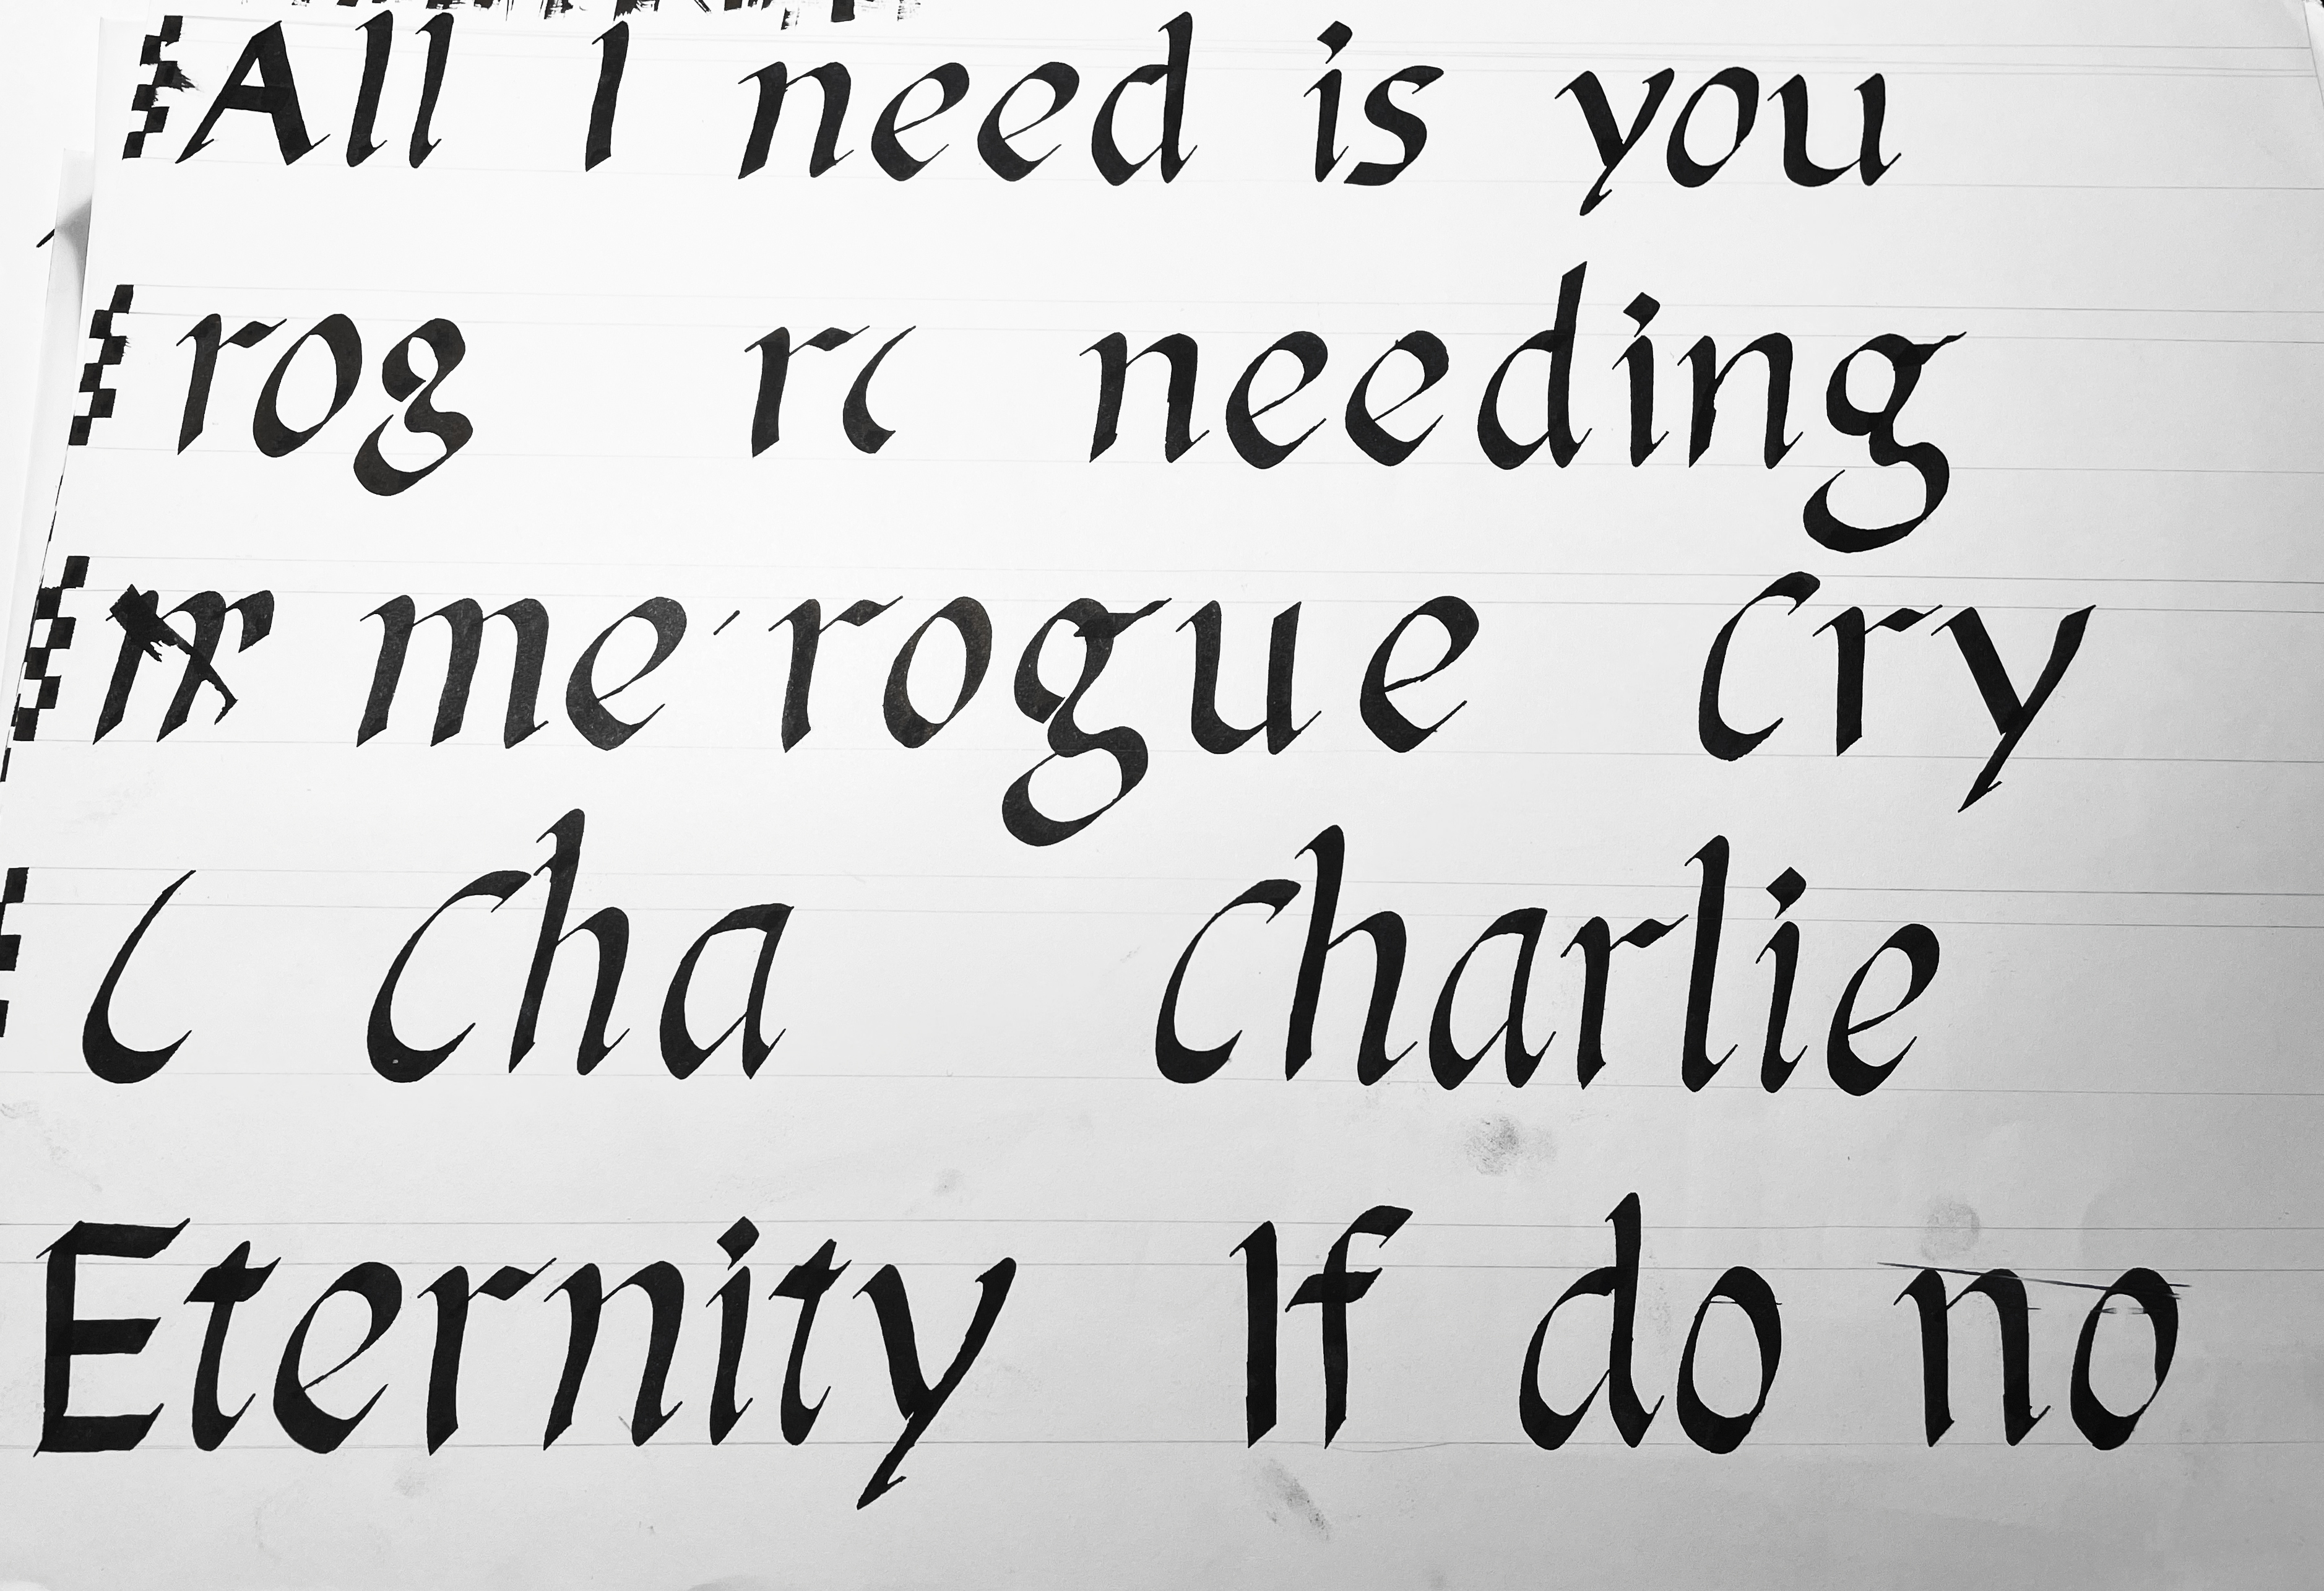 All I need is you
rog rc needing
me rogue Cry
C Cha Charlie
Eternity If do no